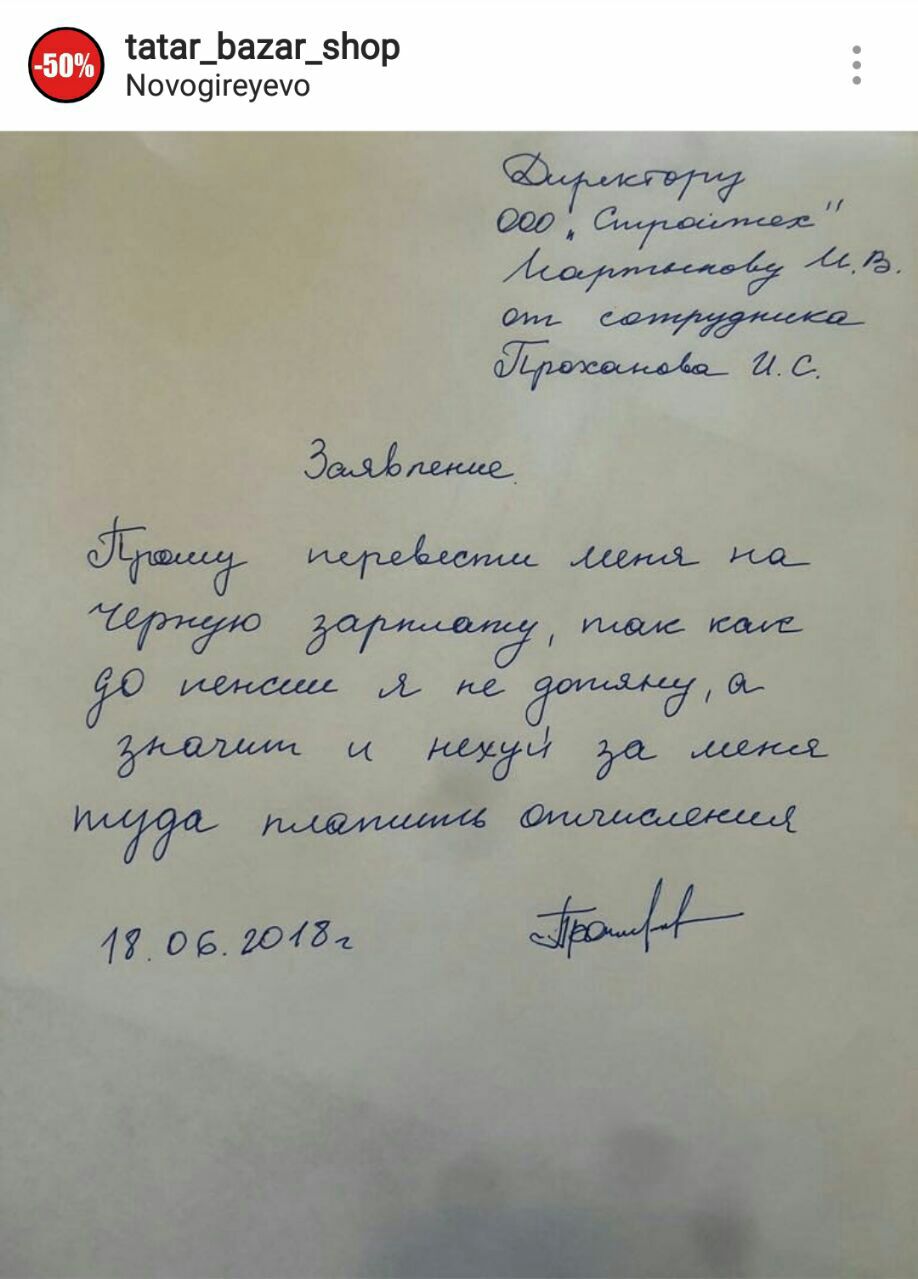 -50%
tatar_bazar_shop
Novogireyevo
Директору
ООО „Стройтех"
Мартынову И.В.
от сотрудника
Проханова И.С.
Заявление.
Прошу перевести меня на
черную зарплату, так как
до пенсии я не дотяну, а
значит и нехуй за меня
туда платить отчисления
18.06.2018г